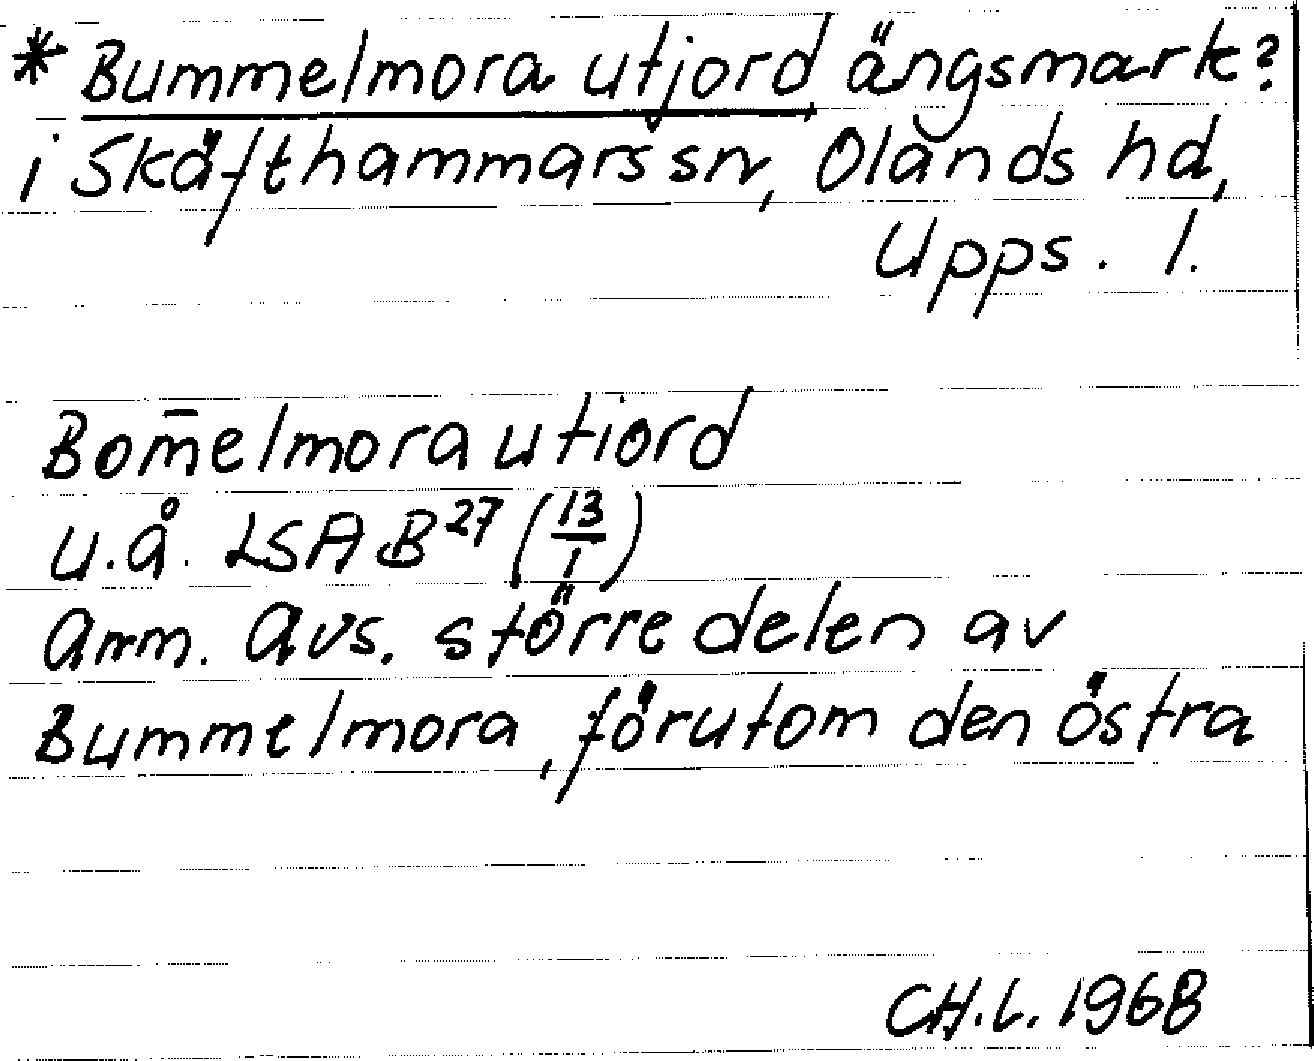 * Bummelmora utjord, ängsmark?
i Skäfthammars sn, Olands hd,
Upps. l.
Bom̄elmora utiord
u.å. LSA B²⁷ (13/1)
Anm. Avs. större delen av
Bummelmora, förutom den östra
CH.L. 1968